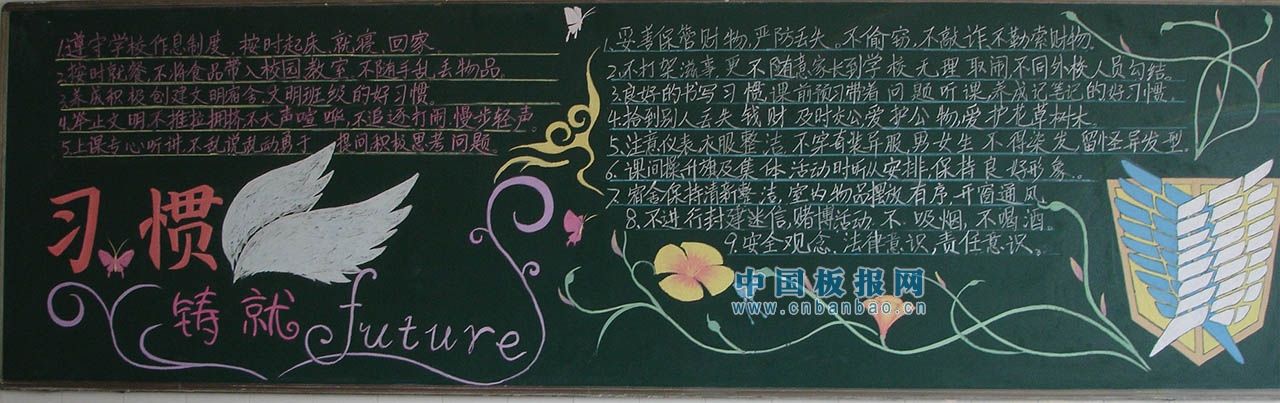 1.遵守学校作息制度,按时起床、就寝、回家。
2.按时就餐,不将食品带入校园教室,不随手乱丢物品。
3.养成积极创建文明宿舍、文明班级的好习惯。
4.举止文明不推拉拥挤不大声喧哗,不追逐打闹,慢步轻声。
5.上课专心听讲,不乱说乱动勇于提问积极思考问题。
习惯
铸就
future
1.妥善保管财物,严防丢失。不偷窃,不敲诈、不勒索财物。
2.不打架滋事,更不随意家长到学校无理取闹,不同外校人员勾结。
3.良好的书写习惯,课前预习带着问题听课,养成记笔记的好习惯。
4.拾到别人丢失钱财及时交公,爱护公物,爱护花草树木。
5.注意仪表,衣服整洁,不穿奇装异服,男女生不得染发,留怪异发型。
6.课间操升旗及集体活动时听从安排,保持良好形象。
7.宿舍保持清新整洁,室内物品摆放有序,开窗通风
8.不进行封建迷信,赌博活动,不吸烟,不喝酒。
9.安全观念、法律意识,责任意识。
中国板报网
www.cnbanbao.cn